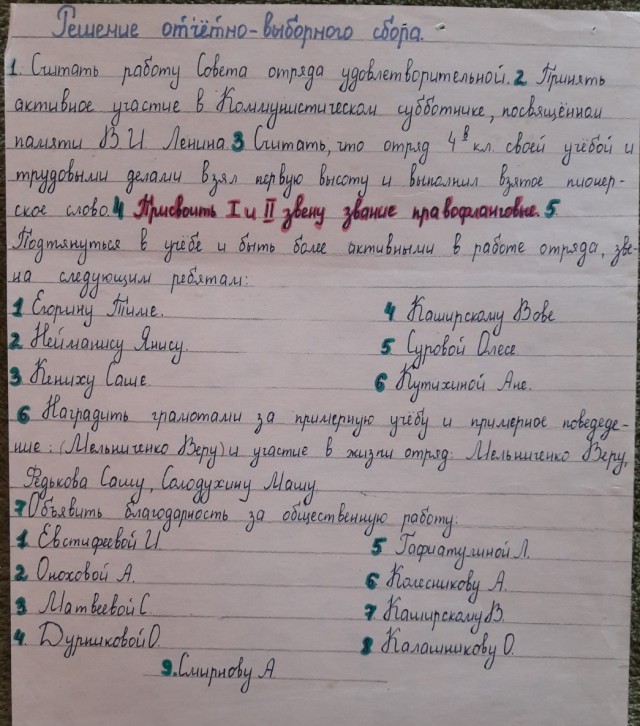 Решение отчётно-выборного сбора.
1. Считать работу Совета отряда удовлетворительной. 2 Принять
активное участие в Коммунистическом субботнике, посвящённом
памяти В.И. Ленина. 3 Считать, что отряд 4 в кл. своей учёбой и
трудовыми делами взял первую высоту и выполнил взятое пионер-
ское слово. 4 Присвоить I и II звену звание правофланговые. 5.
Подтянуться в учёбе и быть более активными в работе отряда, зве-
на следующим ребятам:
1 Егорину Тиме. 4 Каширскому Вове
2 Нейманису Янису. 5 Суровой Олесе
3 Кениху Саше. 6 Кутихиной Ане.
6 Наградить грамотами за примерную учёбу и примерное поведеде-
ние: (Мельниченко Веру) и участие в жизни отряд: Мельниченко Веру,
Федькова Сашу, Солодухину Машу
7 Объявить благодарность за общественную работу:
1 Евстифеевой И. 5 Гафиатулиной Л.
2 Оноховой А. 6 Колесникову А.
3 Матвеевой С. 7 Каширскому В.
4. Дурниковой О. 8 Калашникову О.
9. Смирнову А